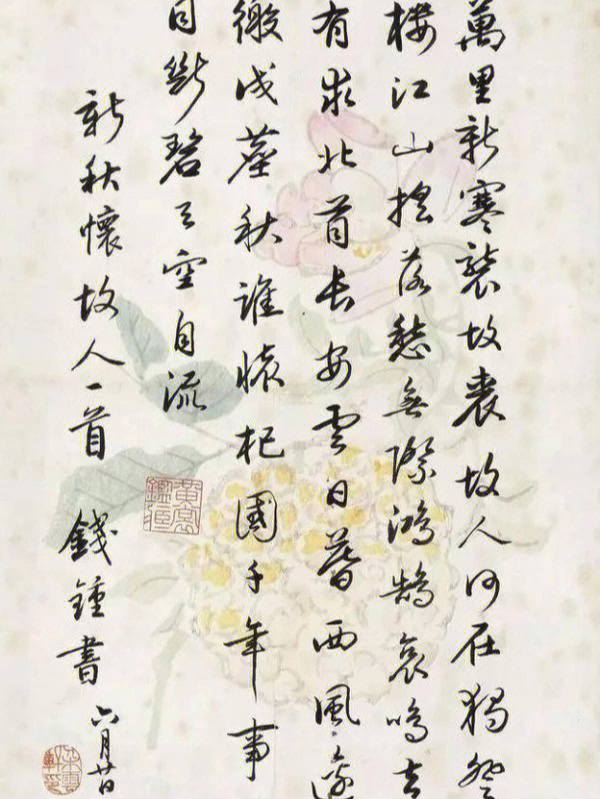 萬里新寒襲故裘故人何在獨登
樓江山搖落愁無際鴻鵠哀鳴去
有求北首長安雲日暮西風邊
徼戍塵秋誰杞國千年事
目斷碧天空自流
新秋懷故人一首 錢鍾書 六月廿日